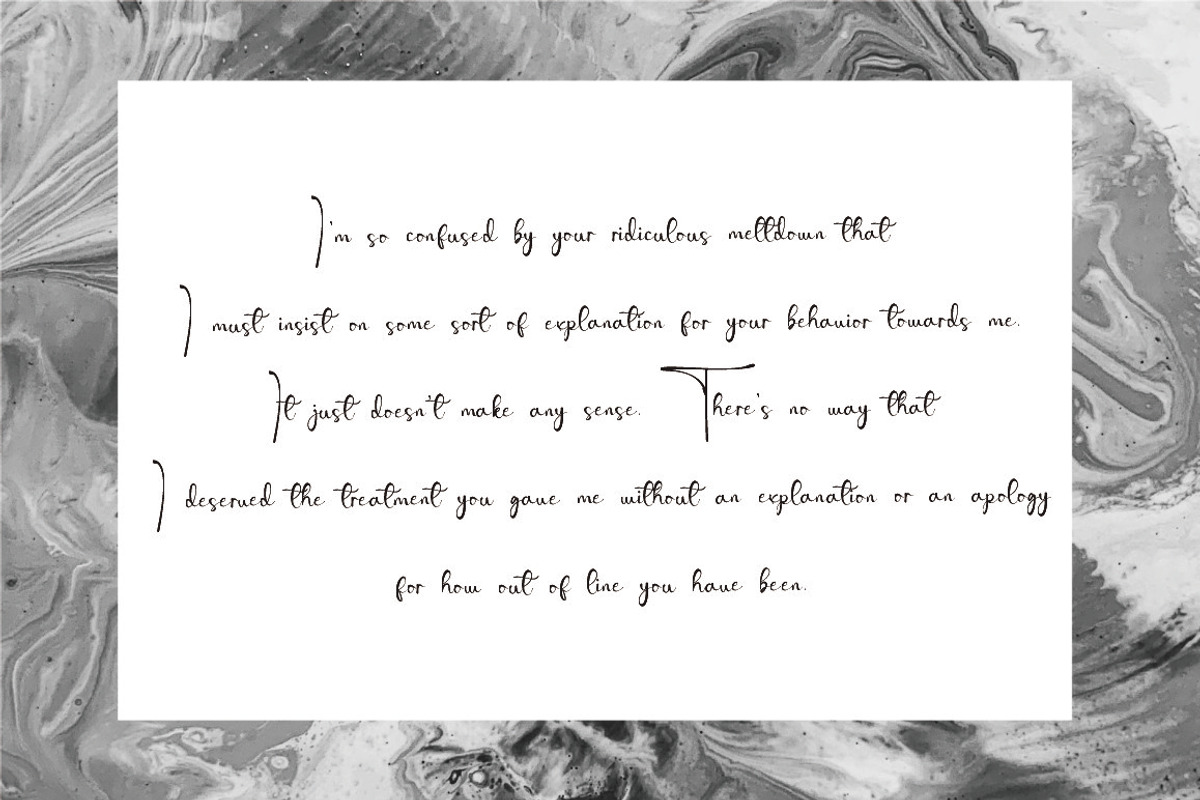 I'm so confused by your ridiculous meltdown that
I must insist on some sort of explanation for your behavior towards me.
It just doesn't make any sense. There's no way that
I deserved the treatment you gave me without an explanation or an apology
for how out of line you have been.